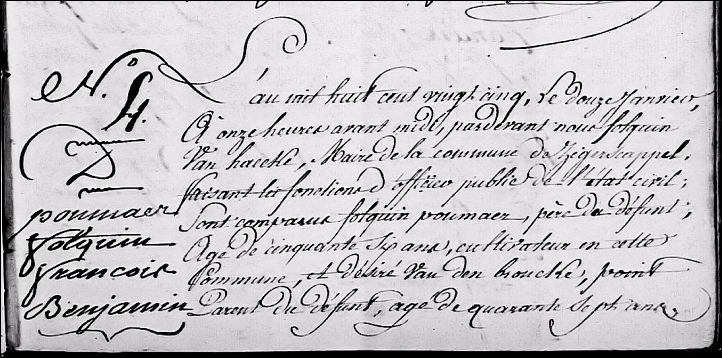 N.° 4.
D
poumaer
folquin
francois
Benjamin
L'an mil huit cent vingt cinq, Le douze Janvier,
à onze heures avant midi, pardevant nous folquin
Van haecke, Maire de la commune de Zegerscappel,
faisant les fonctions d'officier public de l'état civil;
Sont comparus folquin poumaer, père du défunt;
Age de cinquante Six ans, cultivateur en cette
Commune, et désiré Van den broucke, point
Parent du défunt, age de quarante Sept ans,